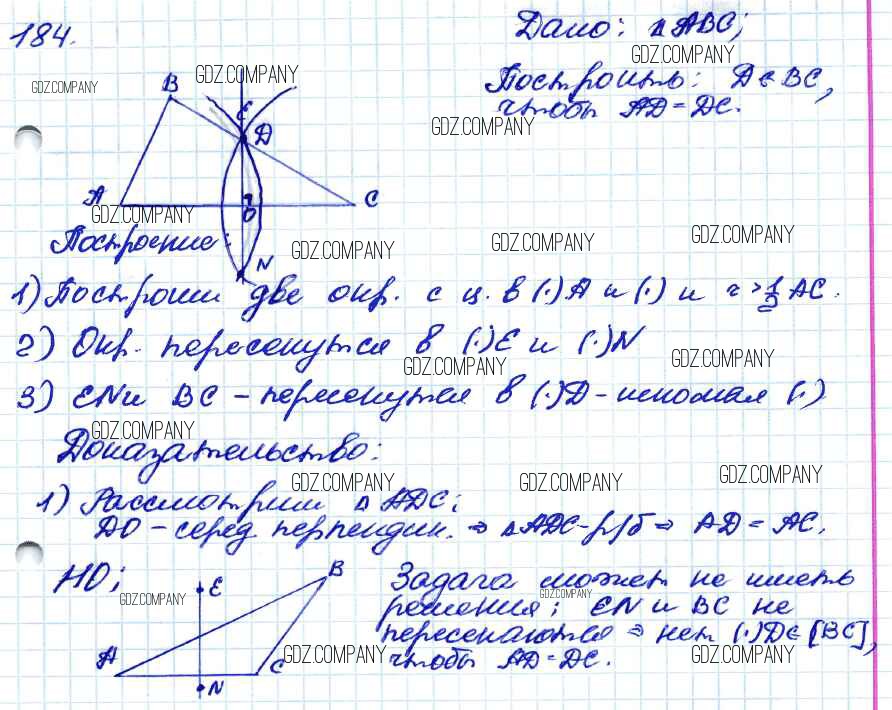 184.
Дано: △ ABC;
Построить: D ∈ BC,
чтобы AD = DC.
GDZ.COMPANY
GDZ.COMPANY
GDZ.COMPANY
GDZ.COMPANY
B
E
D
A
O
C
N
GDZ.COMPANY
Построение:
GDZ.COMPANY
GDZ.COMPANY
GDZ.COMPANY
1) Построим две окр. с ц. в (·)A и (·) и r > 1/2 AC.
2) Окр. пересекутся в (·)E и (·)N
GDZ.COMPANY
GDZ.COMPANY
3) EN и BC – пересекутся в (·)D – искомая (·)
GDZ.COMPANY
Доказательство:
GDZ.COMPANY
GDZ.COMPANY
GDZ.COMPANY
1) Рассмотрим △ ADC;
DO – серед. перпендик. ⇒ △ADC – р/б ⇒ AD = AC.
НО;
E
B
A
C
N
GDZ.COMPANY
GDZ.COMPANY
Задача может не иметь
решения; EN и BC не
пересекаются ⇒ нет (·)D ∈ [BC],
чтобы AD = DC.
GDZ.COMPANY
GDZ.COMPANY